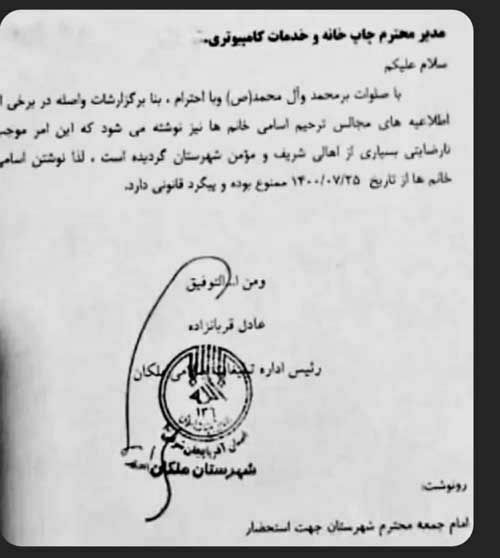 مدیر محترم چاپ خانه و خدمات کامپیوتری.
سلام علیکم
با صلوات برمحمد وآل محمد(ص) وبا احترام ، بنا برگزارشات واصله در برخی از
اطلاعیه های مجالس ترحیم اسامی خانم ها نیز نوشته می شود که این امر موجب
نارضایتی بسیاری از اهالی شریف و مؤمن شهرستان گردیده است ، لذا نوشتن اسامی
خانم ها از تاریخ ۱۴۰۰/۰۷/۲۵ ممنوع بوده و پیگرد قانونی دارد.
ومن التوفیق
عادل قربانزاده
رئیس اداره تبلیغات اسلامی ملکان
۱۳۶
استان آذربایجان شرقی
شهرستان ملکان
رونوشت:
امام جمعه محترم شهرستان جهت استحضار